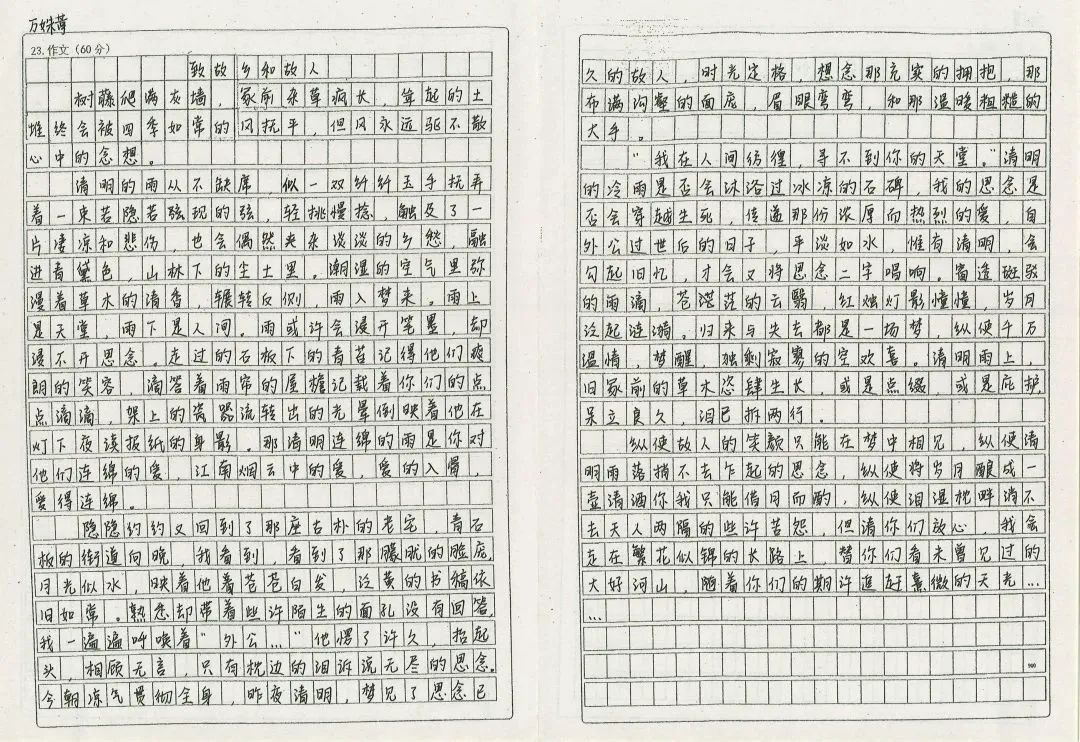 万姝蒨
23.作文（60分）
致故乡和故人
树藤爬满灰墙，冢前杂草疯长，耸起的土
堆终会被四季如常的风抚平，但风永远驱不散
心中的念想。
清明的雨从不缺席，似一双纤纤玉手抚弄
着一束若隐若弦现的弦，轻挑慢捻，触及了一
片凄凉和悲伤，也会偶然夹杂淡淡的乡愁，融
进青黛色，山林下的尘土里。潮湿的空气里弥
漫着草木的清香，辗转反侧，雨入梦来。雨上
是天堂，雨下是人间。雨或许会浸开笔墨，却
浸不开思念。走过的石板下的青苔记得他们爽
朗的笑容，滴答着雨帘的屋檐记载着你们的点
点滴滴，架上的瓷器流转出的光晕倒映着他在
灯下夜读报纸的身影。那清明连绵的雨是你对
他们连绵的爱，江南烟云中的爱，爱的入骨，
爱得连绵。
隐隐约约又回到了那座古朴的老宅，青石
板的街道向晚，我看到，看到了那朦胧的脸庞，
月光似水，映着他着苍苍白发，泛黄的书稿依
旧如常。熟悉却带着些许陌生的面孔没有回答，
我一遍遍呼唤着“外公…”他愣了许久，抬起
头，相顾无言，只有枕边的泪诉说无尽的思念。
今朝凉气贯彻全身，昨夜清明，梦见了思念已
久的故人，时光定格，想念那充实的拥抱，那
布满沟壑的面庞，眉眼弯弯，和那温暖粗糙的
大手。
“我在人间彷徨，寻不到你的天堂。”清明
的冷雨是否会沐浴过冰冻的石碑，我的思念是
否会穿越生死，传递那份浓厚而热烈的爱，自
外公过世后的日子，平淡如水，惟有清明，会
勾起旧忆，才会又将思念二字唱响。窗透斑驳
的雨滴，苍茫茫的云翳，红烛灯影憧憧，岁月
泛起涟漪。归来与失去都是一场梦，纵使千万
温情，梦醒，独剩寂寥的空欢喜。清明雨上，
旧冢前的草木恣肆生长，或是点缀，或是庇护，
呆立良久，泪已拆两行。
纵使故人的笑颜只能在梦中相见，纵使清
明雨落捎不去乍起的思念，纵使将岁月酿成一
壶清酒你我只能借月而酌，纵使泪湿枕畔消不
去天人两隔的些许苦怨，但请你们放心，我会
走在繁花似锦的长路上，替你们看未曾见过的
大好河山，随着你们的期许追赶熹微的天光…
…
900